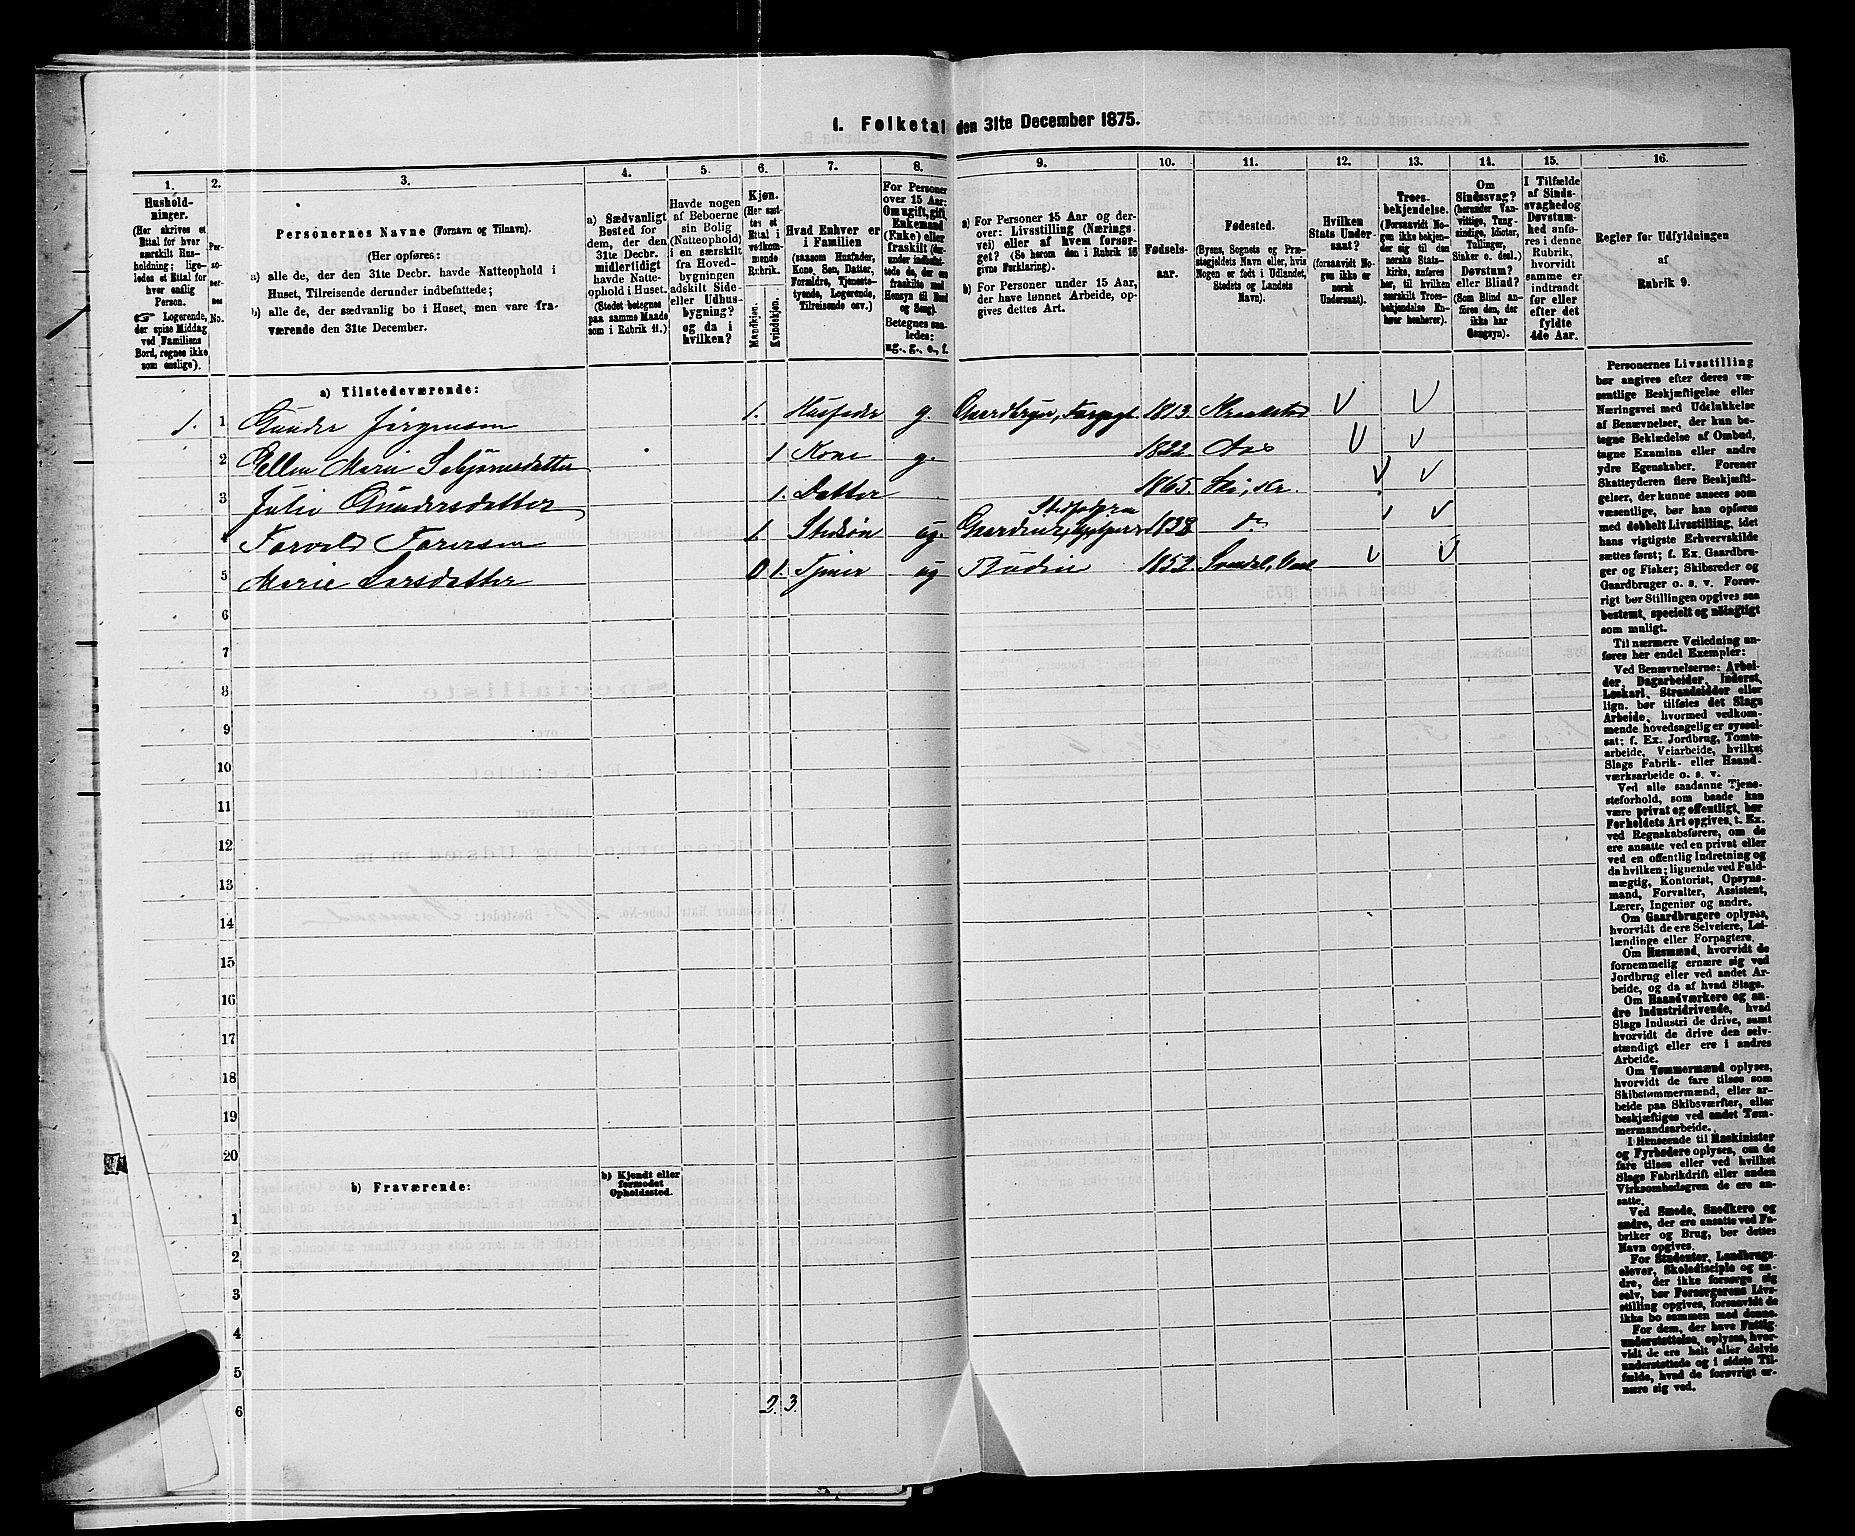 1. Folketal den 31te December 1875.
1. 2. 3. 4. 5. 6. 7. 8. 9. 10. 11. 12. 13. 14. 15. 16.
Hushold-
ninger.
(Her skrives et
Ettal for hver
særskilt Hus-
holdning; lige-
ledes et Ettal for
hver enslig
Person.
☞ Logerende,
der spise Middag
ved Familiens
Bord, regnes ikke
som enslige).
Per-
so-
ner-
nes
No.
Personernes Navne (Fornavn og Tilnavn).
(Her opføres:
a) alle de, der den 31te Decbr. havde Natteophold i
Huset, Tilreisende derunder indbefattede;
b) alle de, der sædvanlig bo i Huset, men vare fra-
værende den 31te December.
a) Sædvanligt
Bosted for
dem, der den
31te Decbr.
midlertidigt
havde Natte-
ophold i Huset.
(Stedet betegnes
paa samme Maade
som i Rubrik 11.)
Havde nogen
af Beboerne
sin Bolig
(Natteophold)
i en særskilt
fra Hoved-
bygningen
adskilt Side-
eller Udhus-
bygning?
og da i
hvilken?
Kjøn.
(Her sæt-
tes et
Ettal i
vedkom-
mende
Rubrik.
Mandkjøn.
Kvindekjøn.
Hvad Enhver er
i Familien
(saasom Husfader,
Kone, Søn, Datter,
Forældre, Tjeneste-
tyende, Logerende,
Tilreisende osv.)
For Personer
over 15 Aar:
Om ugift, gift,
Enkemand
(Enke) eller
fraskilt (der-
under indbefat-
tede de, der ere
fraskilte med
Hensyn til Bord
og Seng).
Betegnes saa-
ledes:
ug., g., e., f.
a) For Personer 15 Aar og der-
over: Livsstilling (Nærings-
vei) eller af hvem forsør-
get? (Se herom den i Rubrik 16
givne Forklaring).
b) For Personer under 15 Aar,
der have lønnet Arbeide, op-
gives dettes Art.
Fødsels-
aar.
Fødested.
(Byens, Sognets og Præ-
stegjeldets Navn eller, hvis
Nogen er født i Udlandet,
Stedets og Landets
Navn).
Hvilken
Stats Under-
saat?
(forsaavidt No-
gen ikke er
norsk
Undersaat).
Troes-
bekjendelse.
(Forsaavidt No-
gen ikke bekjen-
der sig til den
norske Stats-
kirke, anføres
her, til hvilken
særskilt Troes-
bekjendelse En-
hver henhører).
Om
Sindssvag?
(herunder Van-
vittige, Tung-
sindige, Idioter,
Tullinger,
Sinker o. desl.)
Døvstum?
eller Blind?
(Som Blind an-
føres den, der
ikke har
Gangsyn).
I Tilfælde
af Sinds-
svaghed og
Døvstum-
hed anfø-
res i denne
Rubrik,
hvorvidt
samme er
indtraadt
før eller
efter det
fyldte
4de Aar.
Regler for Udfyldningen
af
Rubrik 9.
a) Tilstedeværende:
1. 1 Gunder Jørgensen 1. Husfader g. Gaardbruger, 1813 Kraakstad
2 Ellen Marie 1 Kone g. 1822 Aas
3 Julie Gundersdatter 1. Datter 1865. Ski, S.
4 1. Stedsøn ug. 1838 do
5 Marie Larsdatter 0 1. Tjener ug 1852
6
7
8
9
10
11
12
13
14
15
16
17
18
19
20
b) Fraværende:
b) Kjendt eller
formodet
Opholdssted.
1
2
3
4
5
6 2. 3.
Personernes Livsstilling
bør angives efter deres væ-
sentlige Beskjæftigelse eller
Næringsvei med Udelukkelse
af Benævnelser, der kun be-
tegne Beklædelse af Ombud,
tagne Examina eller andre
ydre Egenskaber. Forener
Skatteyderen flere Beskjæfti-
gelser, der kunne ansees som
væsentlige, bør han opføres
med dobbelt Livsstilling, idet
hans vigtigste Erhvervskilde
sættes først; f. Ex. Gaardbru-
ger og Fisker; Skibsreder og
Gaardbruger o. s. v. Forøv-
rigt bør Stillingen opgives saa
bestemt, specielt og nøiagtigt
som muligt.
Til nærmere Veiledning an-
føres her endel Exempler:
Ved Benævnelserne: Arbei-
der, Dagarbeider, Inderst,
Løskarl, Strandsidder eller
lign. bør tilføies det Slags
Arbeide, hvormed vedkom-
mende hovedsagelig er syssel-
sat; f. Ex. Jordbrug, Tomte-
arbeide, Veiarbeide, hvilket
Slags Fabrik- eller Haand-
værksarbeide o. s. v.
Ved alle saadanne Tjene-
steforhold, som baade kan
være privat og offentligt, bør
Forholdets Art opgives, t. Ex.
ved Regnskabsførere, om de
ere ansatte ved en privat eller
ved en offentlig Indretning og
da hvilken; lignende ved Fuld-
mægtig, Kontorist, Opsyns-
mand, Forvalter, Assistent,
Lærer, Ingeniør og andre.
Om Gaardbrugere oplyses,
hvorvidt de ere Selveiere, Lei-
lændinge eller Forpagtere.
Om Husmænd, hvorvidt de
fornemmelig ernære sig ved
Jordbrug eller ved andet Ar-
beide, og da af hvad Slags.
Om Haandværkere og an-
dre Industridrivende, hvad
Slags Industri de drive, samt
hvorvidt de drive den selv-
stændigt eller ere i andres
Arbeide.
Om Tømmermænd oplyses,
hvorvidt de fare tilsøs som
Skibstømmermænd, eller ar-
beide paa Skibsværfter, eller
beskjæftiges ved andet Tøm-
mermandsarbeide.
I Henseende til Maskinister
og Fyrbødere oplyses, om de
fare tilsøs eller ved hvilket
Slags Fabrikdrift eller anden
Virksomhedsgren de ere an-
satte.
Ved Smede, Snedkere og
andre, der ere ansatte ved Fa-
briker og Brug, bør dettes
Navn opgives.
For Studenter, Landbrugs-
elever, Skoledisciple og an-
dre, der ikke forsørge sig
selv, bør Forsørgerens Livs-
stilling opgives, forsaavidt de
ikke bo sammen med denne.
For dem, der have Fattig-
understøttelse, oplyses, hvor-
vidt de ere helt eller delvis
understøttede og i sidste Til-
fælde, hvad de forøvrigt er-
nære sig ved.